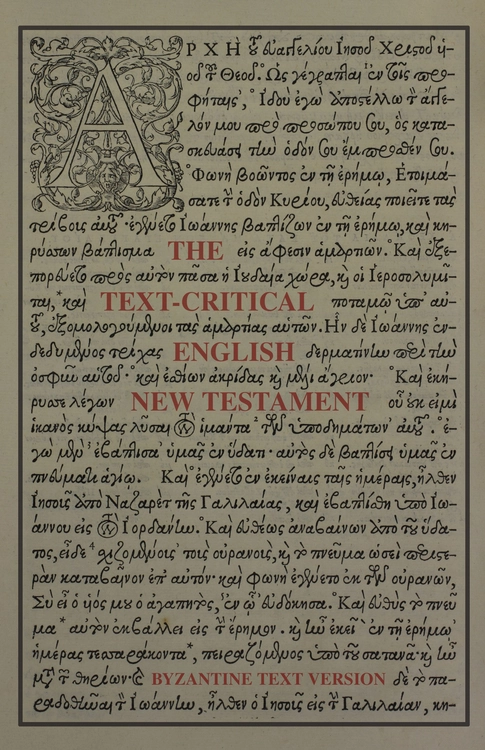 THE
TEXT-CRITICAL
ENGLISH
NEW TESTAMENT
BYZANTINE TEXT VERSION
ΑΡΧΗ τοῦ εὐαγγελίου Ἰησοῦ Χριστοῦ υἱ-
οῦ τοῦ Θεοῦ. Ὡς γέγραπται ἐν τοῖς προ-
φήταις, Ἰδοὺ ἐγὼ ἀποστέλλω τὸν ἄγγε-
λόν μου πρὸ προσώπου σου, ὃς κατα-
σκευάσει τὴν ὁδόν σου ἔμπροσθέν σου.
Φωνὴ βοῶντος ἐν τῇ ἐρήμῳ, Ἑτοιμά-
σατε τὴν ὁδὸν Κυρίου, εὐθείας ποιεῖτε τὰς
τρίβους αὐτοῦ. ἐγένετο Ἰωάννης βαπτίζων ἐν τῇ ἐρήμῳ, καὶ κη-
ρύσσων βάπτισμα εἰς ἄφεσιν ἁμαρτιῶν. Καὶ ἐξε-
πορεύετο πρὸς αὐτὸν πᾶσα ἡ Ἰουδαία χώρα, καὶ οἱ Ἱεροσολυμῖ-
ται, καὶ ποταμῷ ὑπ' αὐ-
τοῦ, ἐξομολογούμενοι τὰς ἁμαρτίας αὐτῶν. Ἦν δὲ Ἰωάννης ἐν-
δεδυμένος τρίχας δερματίνην περὶ τὴν
ὀσφὺν αὐτοῦ· καὶ ἐσθίων ἀκρίδας καὶ μέλι ἄγριον· Καὶ ἐκή-
ρυσσε λέγων οὗ οὐκ εἰμὶ
ἱκανὸς κύψας λῦσαι τὸν ἱμάντα τῶν ὑποδημάτων αὐτοῦ. ἐ-
γὼ μὲν ἐβάπτισα ὑμᾶς ἐν ὕδατι· αὐτὸς δὲ βαπτίσει ὑμᾶς ἐν
πνεύματι ἁγίῳ. Καὶ ἐγένετο ἐν ἐκείναις ταῖς ἡμέραις, ἦλθεν
Ἰησοῦς ἀπὸ Ναζαρὲτ τῆς Γαλιλαίας, καὶ ἐβαπτίσθη ὑπὸ Ἰω-
άννου εἰς τὸν Ἰορδάνην. Καὶ εὐθέως ἀναβαίνων ἀπὸ τοῦ ὕδα-
τος, εἶδε σχιζομένους τοὺς οὐρανοὺς, καὶ τὸ πνεῦμα ὡσεὶ περιστε-
ρὰν καταβαῖνον ἐπ' αὐτόν· καὶ φωνὴ ἐγένετο ἐκ τῶν οὐρανῶν,
Σὺ εἶ ὁ υἱός μου ὁ ἀγαπητὸς, ἐν ᾧ εὐδόκησα. Καὶ εὐθὺς τὸ πνεῦ
μα αὐτὸν ἐκβάλλει εἰς τὴν ἔρημον. καὶ ἦν ἐκεῖ ἐν τῇ ἐρήμῳ
ἡμέρας τεσσαράκοντα, πειραζόμενος ὑπὸ τοῦ σατανᾶ· καὶ ἦν
μετὰ τῶν θηρίων· δὲ τὸ πα-
ραδοθῆναι τὸν Ἰωάννην, ἦλθεν ὁ Ἰησοῦς εἰς τὴν Γαλιλαίαν, κη-